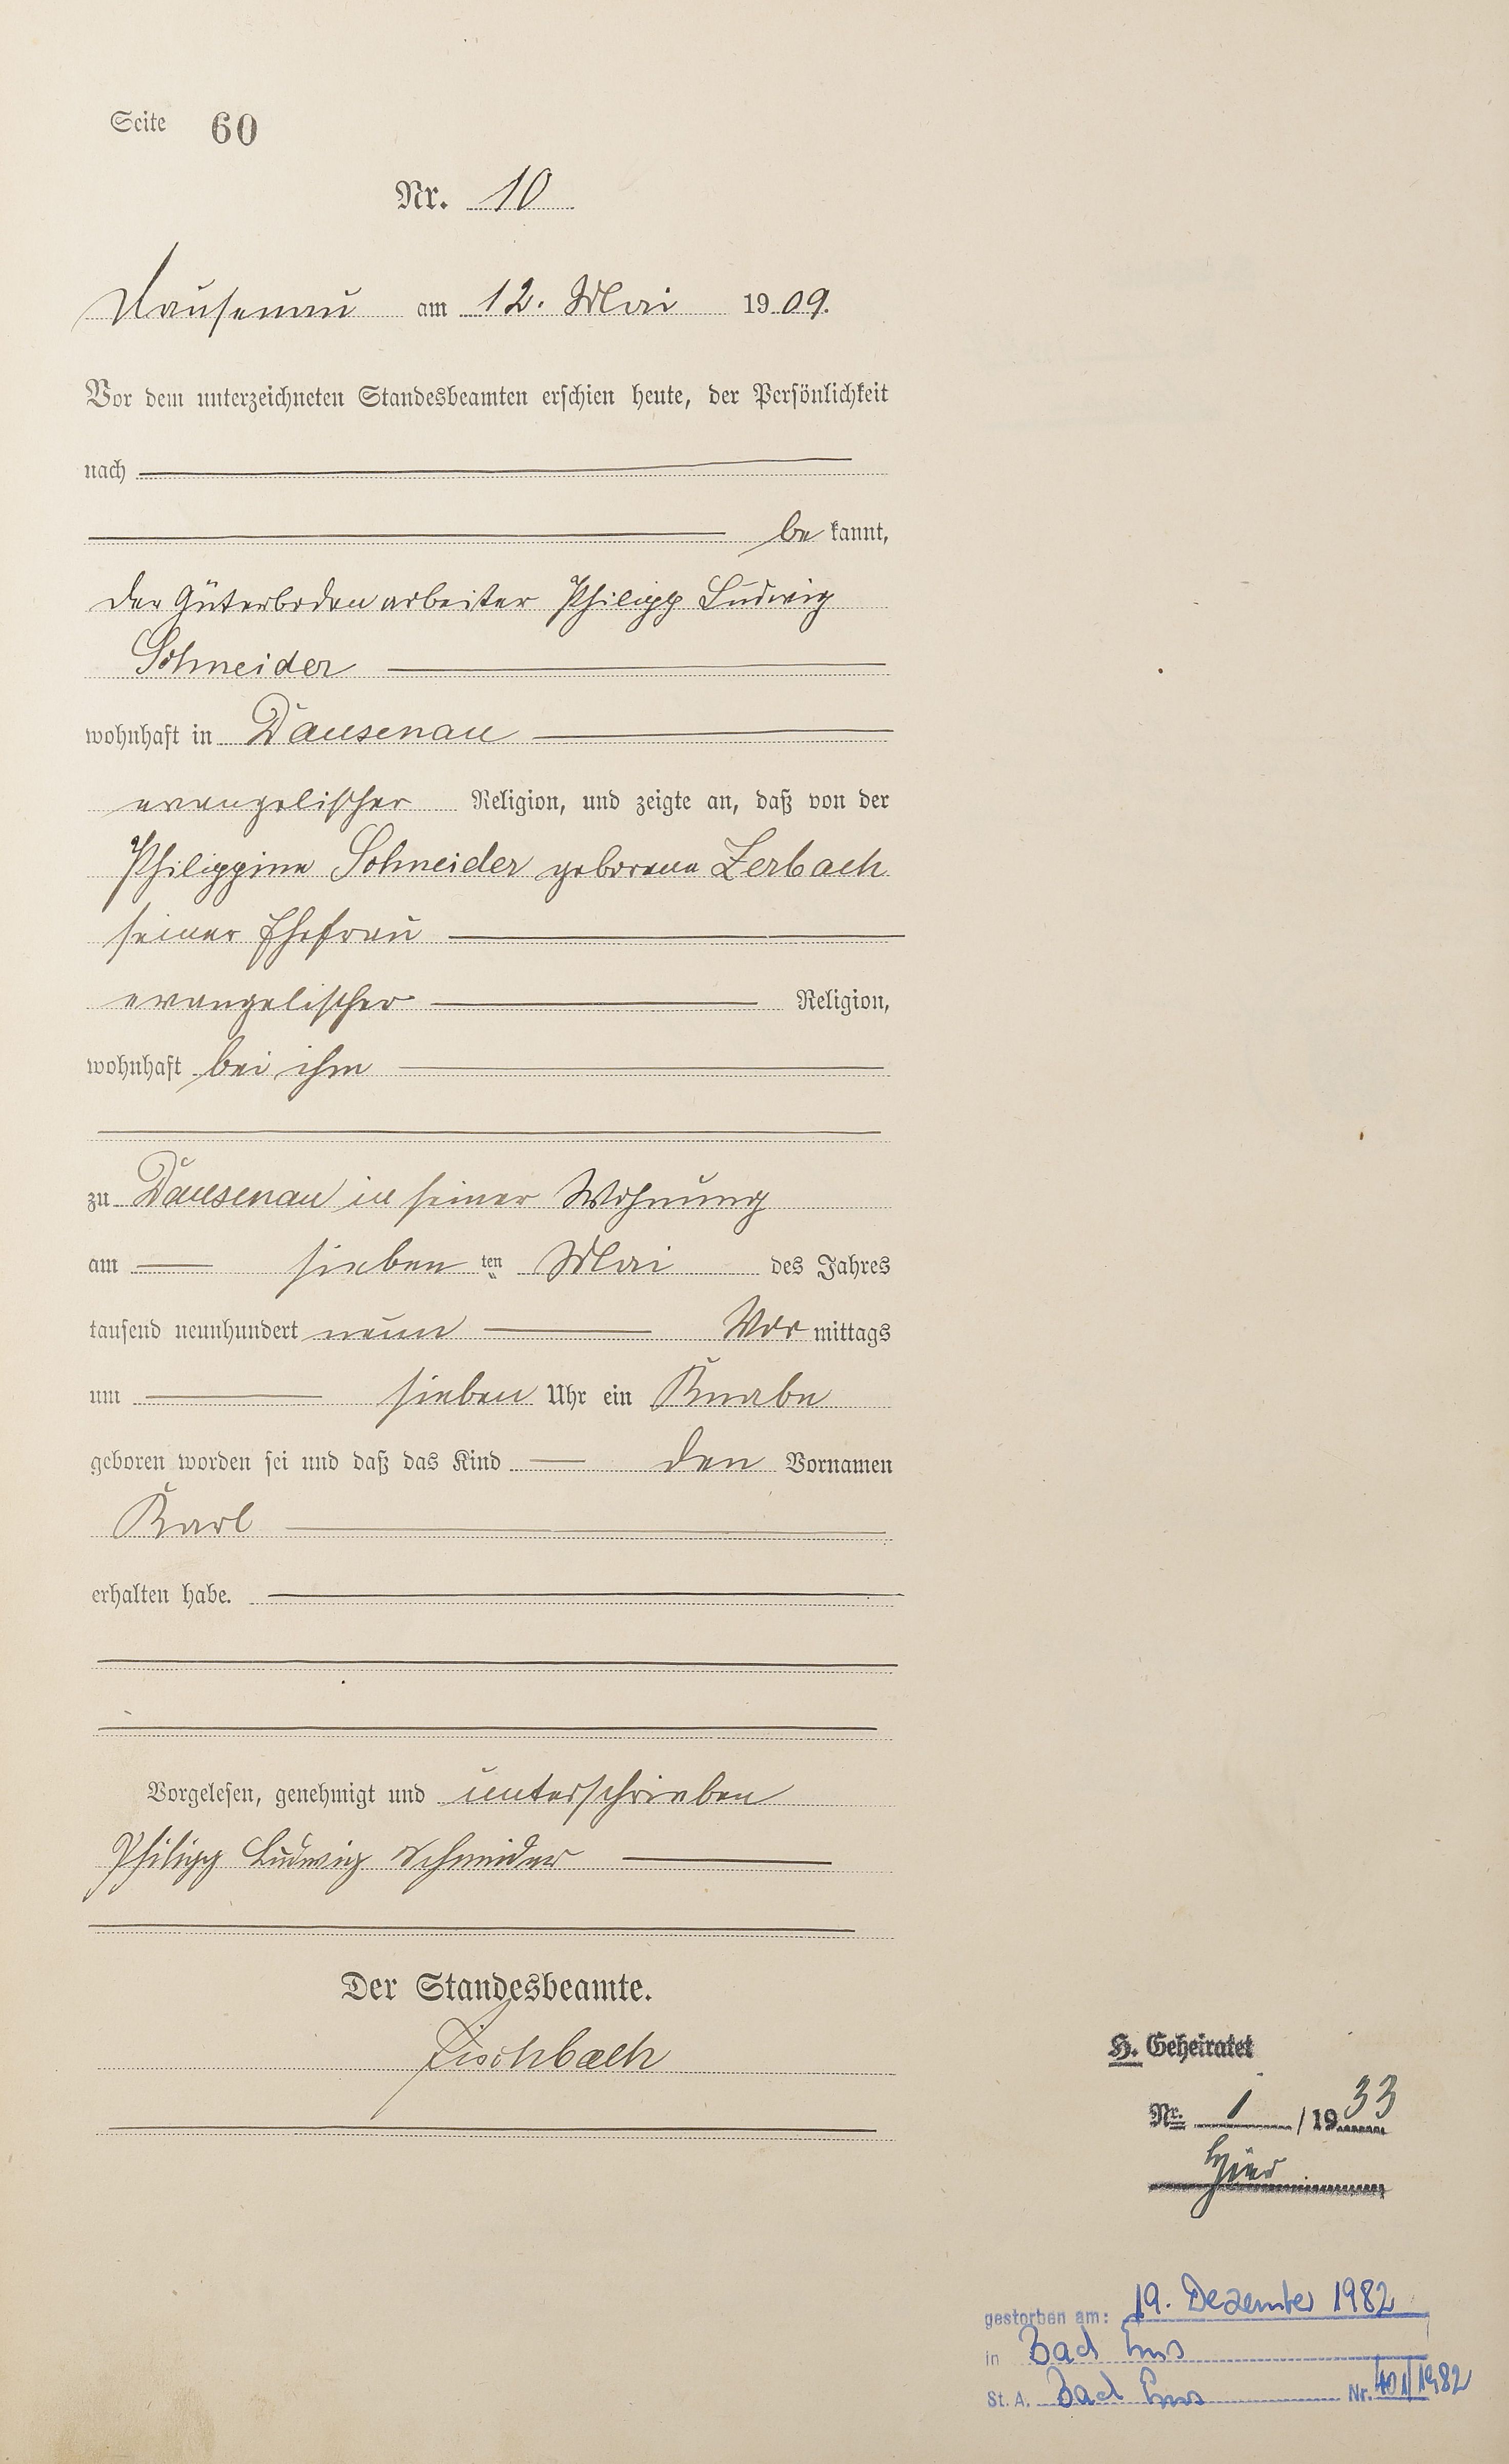 Seite 60
Nr. 10
Dausenau am 12. Mai 1909.
Vor dem unterzeichneten Standesbeamten erschien heute, der Persönlichkeit
nach
be kannt,
der Güterbodenarbeiter Philipp Ludwig
Schneider
wohnhaft in Dausenau
evangelischer Religion, und zeigte an, daß von der
Philippine Schneider geborene Zerbach
seiner Ehefrau
evangelischer Religion,
wohnhaft bei ihm
zu Dausenau in seiner Wohnung
am sieben ten Mai des Jahres
tausend neunhundert neun Vor mittags
um sieben Uhr ein Knabe
geboren worden sei und daß das Kind den Vornamen
Karl
erhalten habe.
Vorgelesen, genehmigt und unterschrieben
Philipp Ludwig Schneider
Der Standesbeamte.
Fischbach
H. Geheiratet
Nr. 1 / 1933
hier
gestorben am: 19. Dezember 1982
in Bad Ems
St. A. Bad Ems Nr. 401/1982